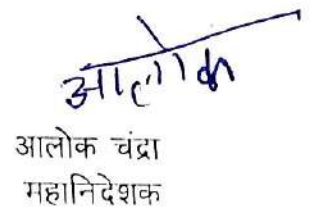 आलोक
आलोक चंद्रा
महानिदेशक